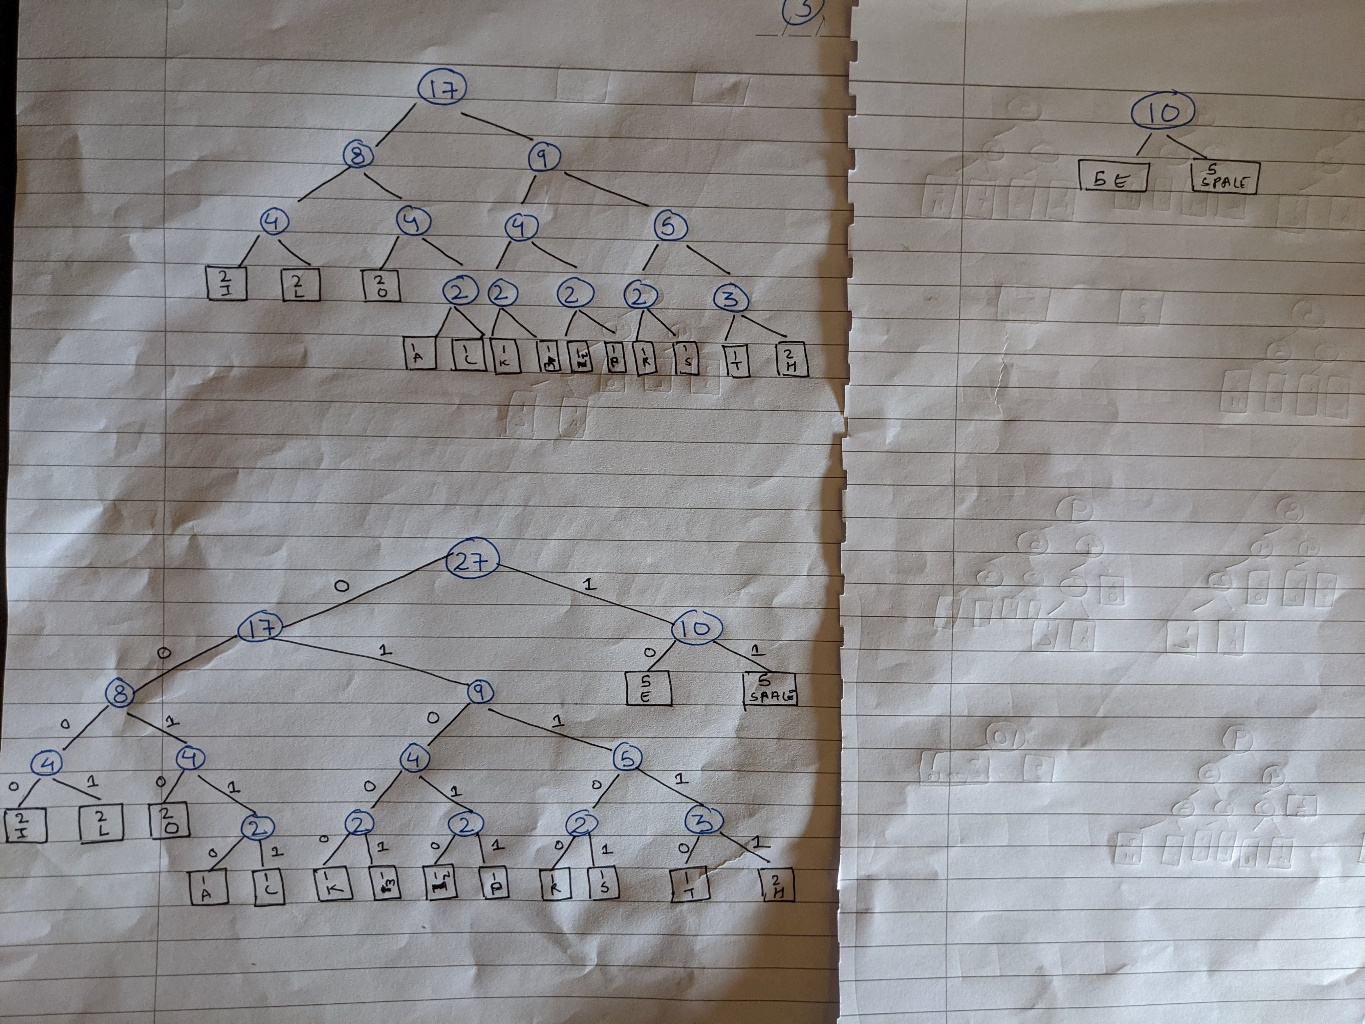 3
17
10
8 9
5 E 5 SPALE
4 4 4 5
2 I 2 L 2 O 2 2 2 2 3
1 A 1 C 1 K 1 1 1 P 1 R 1 S 1 T 2 H
27
0 1
17 10
0 1 0 1
8 9 5 E 5 SPALE
0 1 0 1
4 4 4 5
0 1 0 1 0 1 0 1
2 I 2 L 2 O 2 2 2 2 3
0 1 0 1 0 1 0 1 0 1
1 A 1 C 1 K 1 1 1 P 1 R 1 S 1 T 2 H